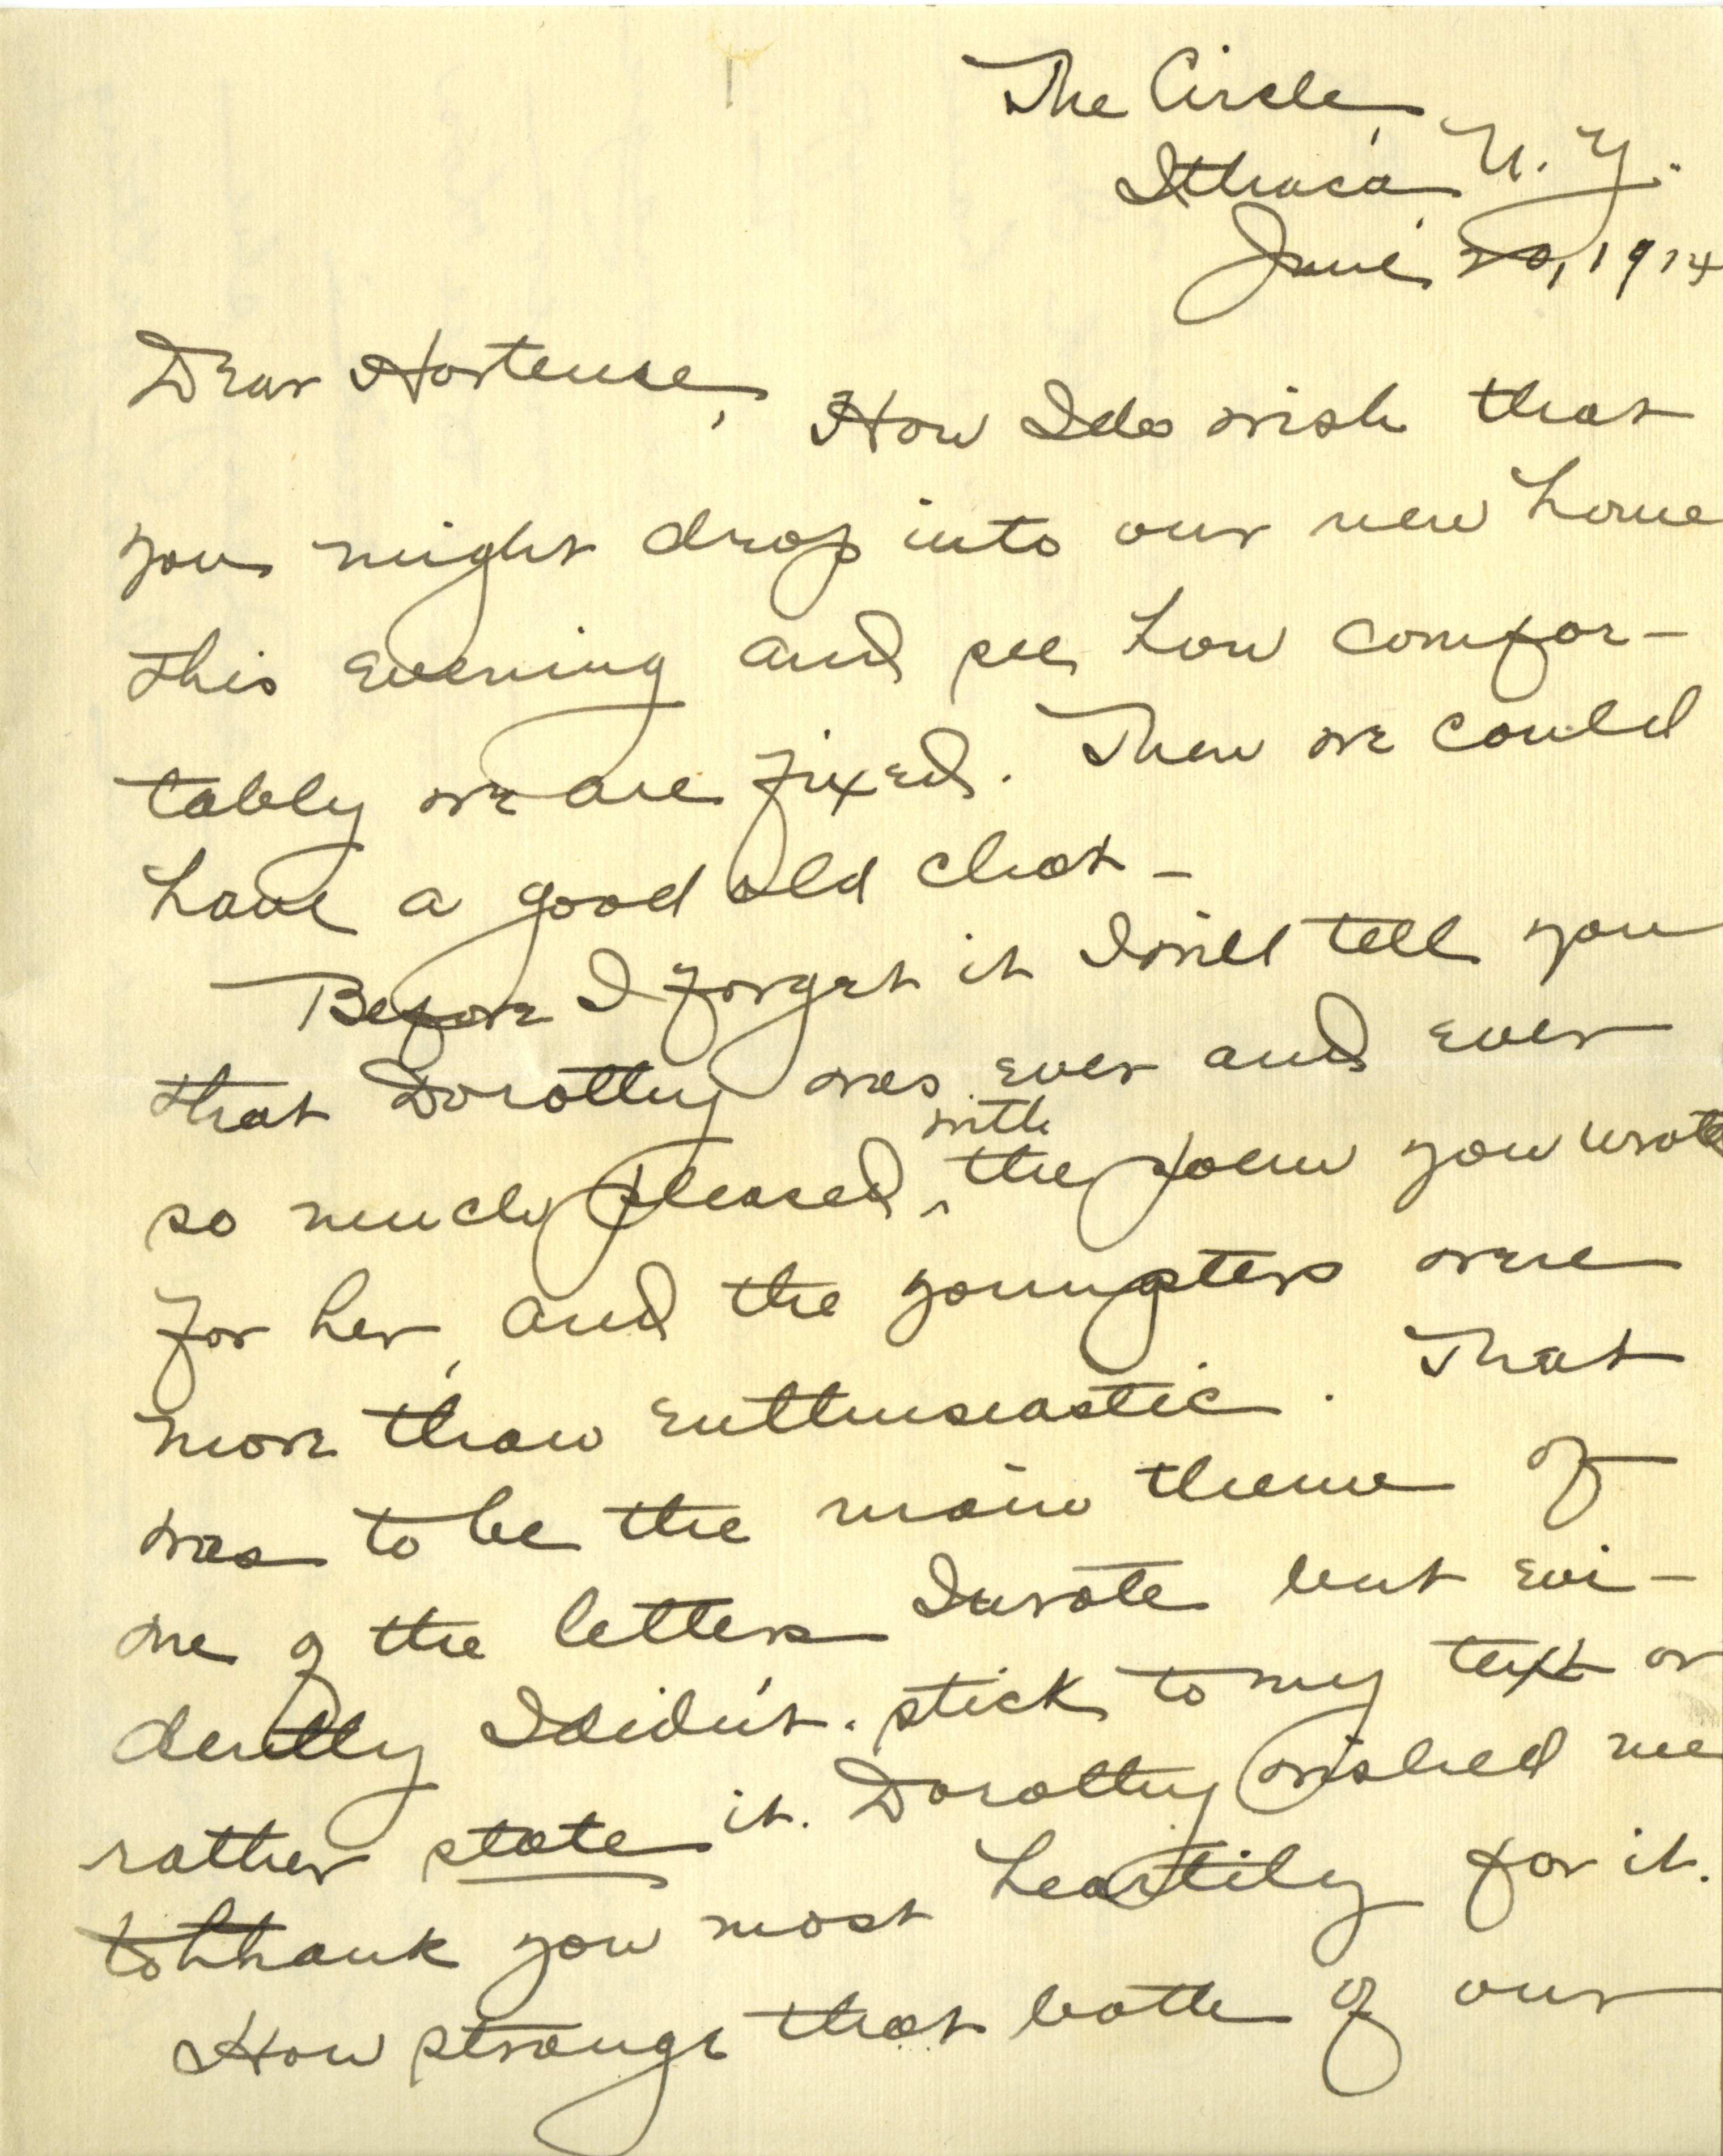 The Circle,
Ithaca, N. Y.
June 20, 1914
Dear Hortense,
How I do wish that
you might drop into our new home
this evening and see how comfor-
tably we are fixed. Then we could
have a good old chat -
Before I forget it I will tell you
that Dorothy was ever and ever
with
so much pleased ^ the poem you wrote
for her, and the youngsters were
more than enthusiastic. That
was to be the main theme of
one of the letters I wrote but evi-
dently I didn't stick to my text or
rather state it. Dorothy wished me
to thank you most heartily for it.
How strange that both of our